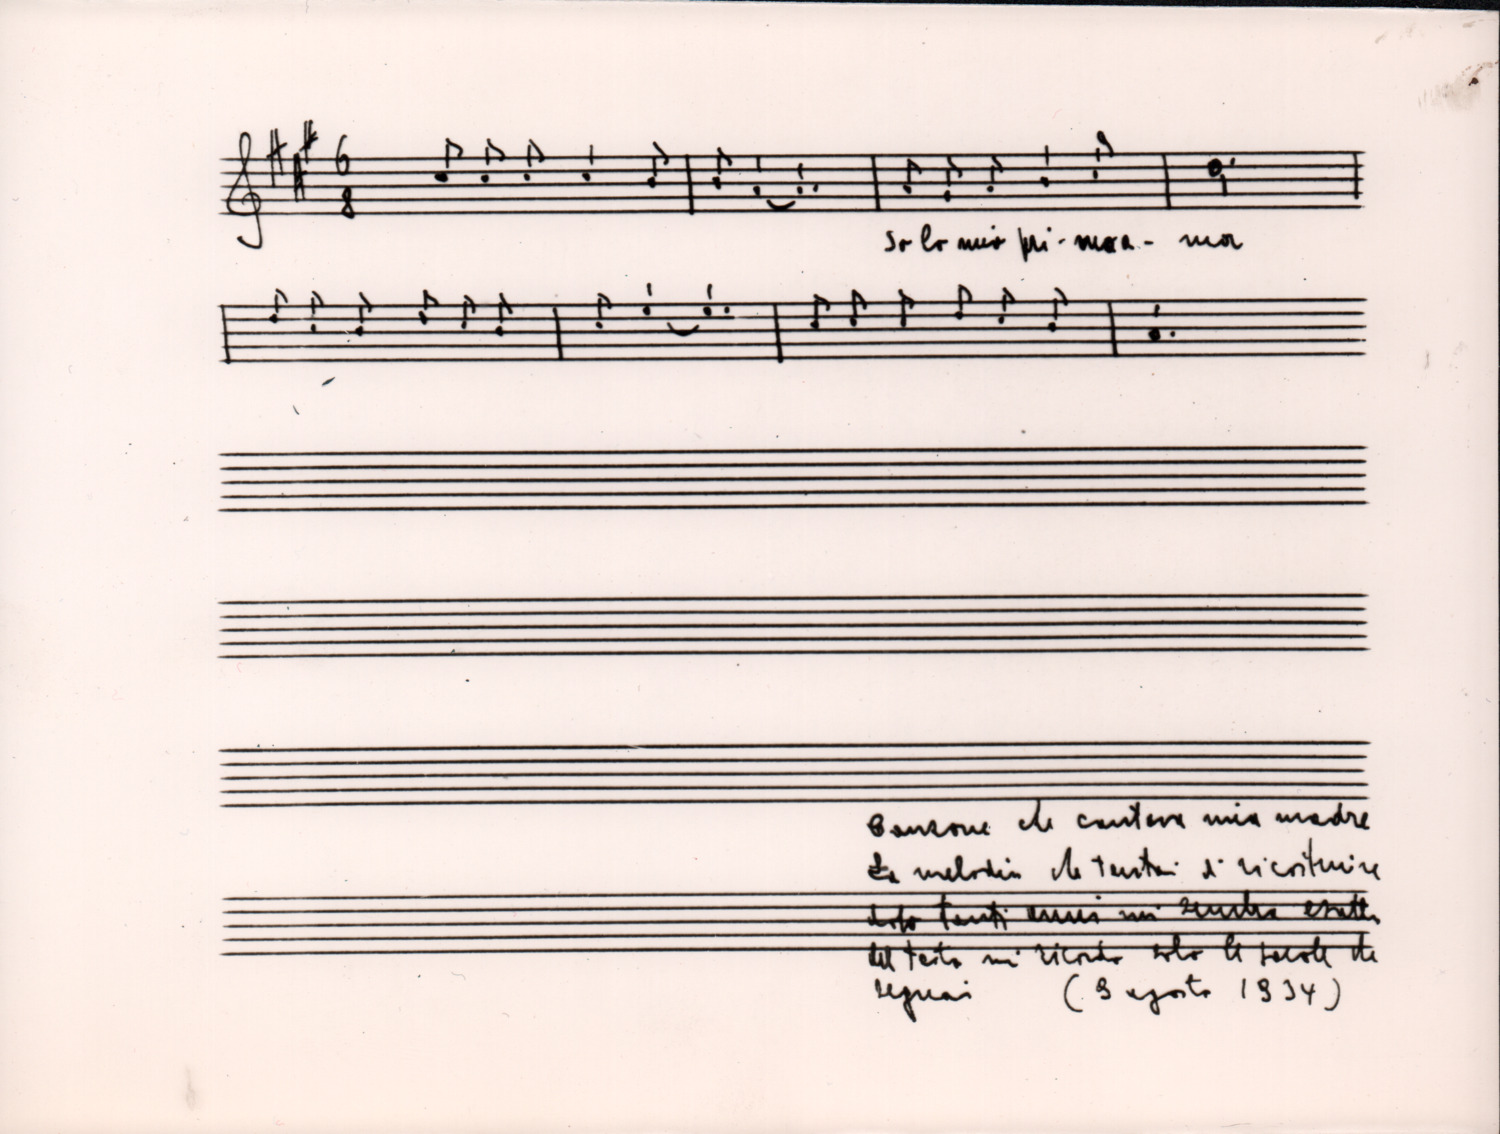 6
8
so lo mio pri-mo a-mor
Canzone che cantava mia madre
La melodia che tentai di ricostruire
dopo tanti anni mi sembra esatta
del testo mi ricordo solo le parole che
segnai (9 agosto 1934)